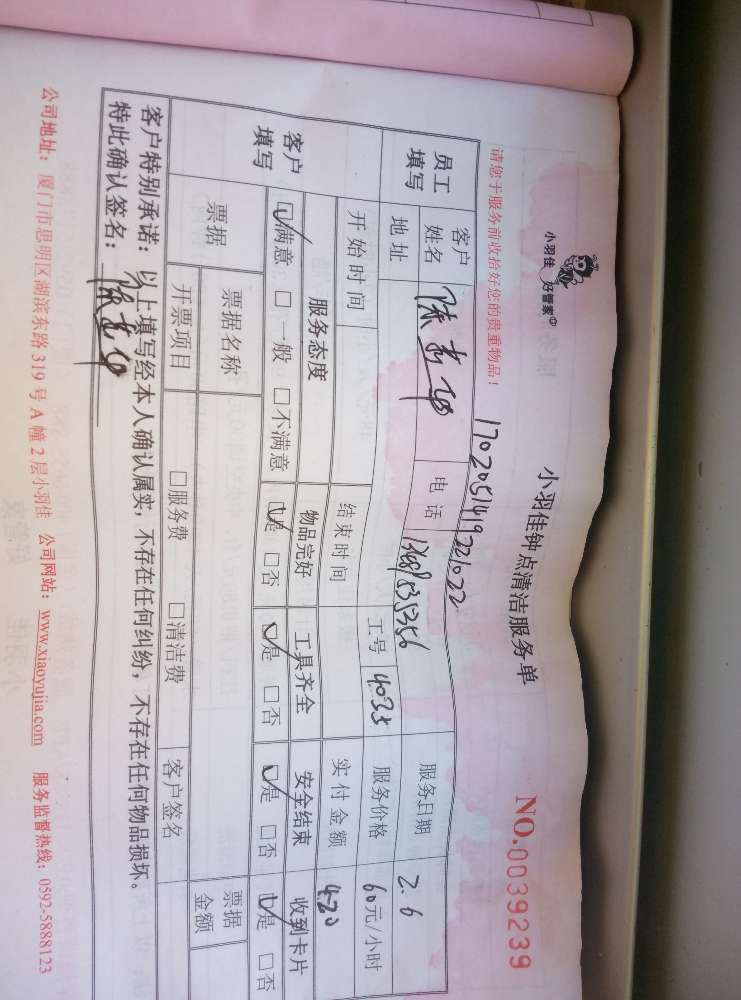 小羽佳 好管家
小羽佳钟点清洁服务单
NO.0039239
请您于服务前收拾好您的贵重物品！
员工填写
客户姓名
电话
服务日期 2.6
地址
工号 4035
服务价格 60元/小时
客户填写
开始时间
结束时间
实付金额 420
服务态度 物品完好 工具齐全 安全结束 收到卡片
☑满意 □一般 □不满意 ☑是 □否 ☑是 □否 ☑是 □否 ☑是 □否
票据
票据名称
票据金额
开票项目 □服务费 □清洁费 客户签名
客户特别承诺：以上填写经本人确认属实，不存在任何纠纷，不存在任何物品损坏。
特此确认签名：
公司地址：厦门市思明区湖滨东路319号A幢2层小羽佳 公司网站：www.xiaoyujia.com 服务监督热线：0592-5888123